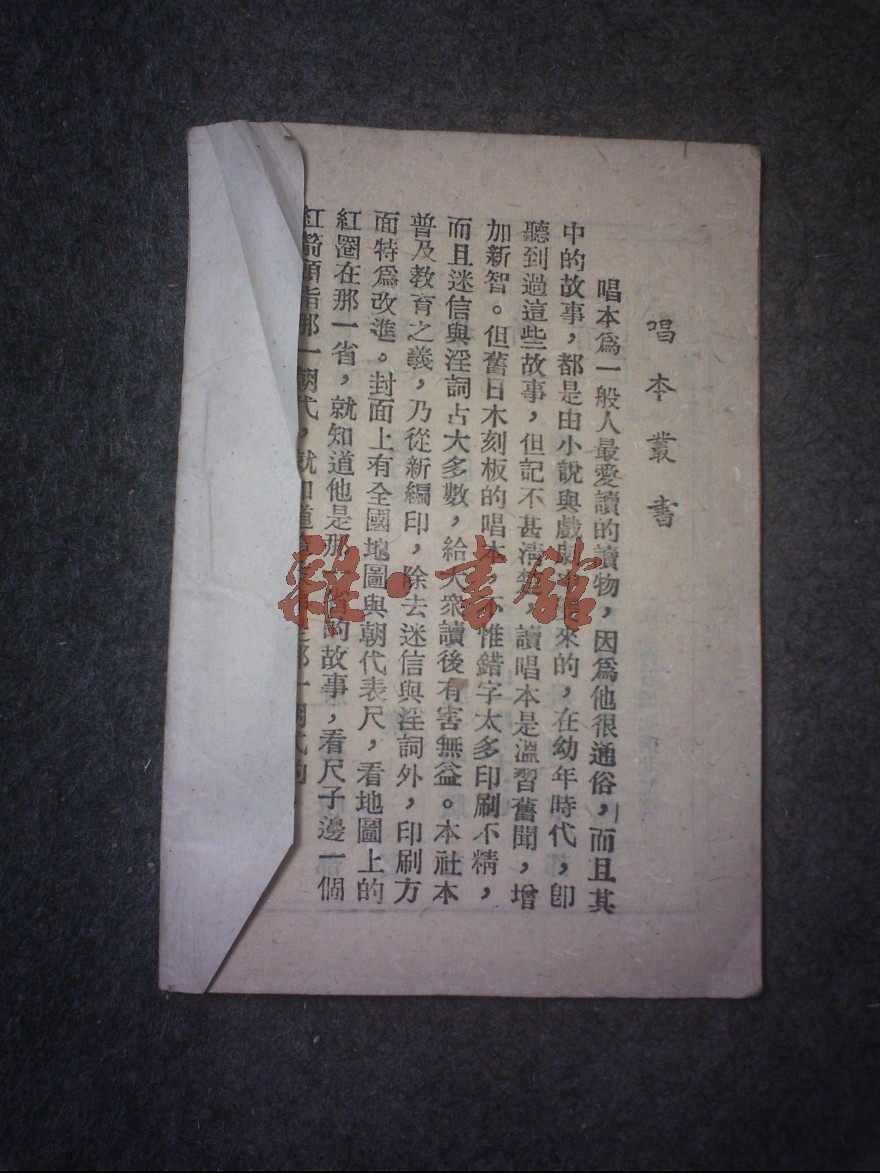 唱本叢書
唱本爲一般人最愛讀的讀物，因爲他很通俗，而且其
中的故事，都是由小說與戲劇來的，在幼年時代，卽
聽到過這些故事，但記不甚清楚，讀唱本是溫習舊聞，增
加新智。但舊日木刻板的唱本，不惟錯字太多印刷不精，
而且迷信與淫詞占大多數，給大衆讀後有害無益。本社本
普及教育之義，乃從新編印，除去迷信與淫詞外，印刷方
面特爲改進。封面上有全國地圖與朝代表尺，看地圖上的
紅圈在那一省，就知道他是那一省的故事，看尺子邊一個
紅箭頭指那一朝代，就知道
雜·書館